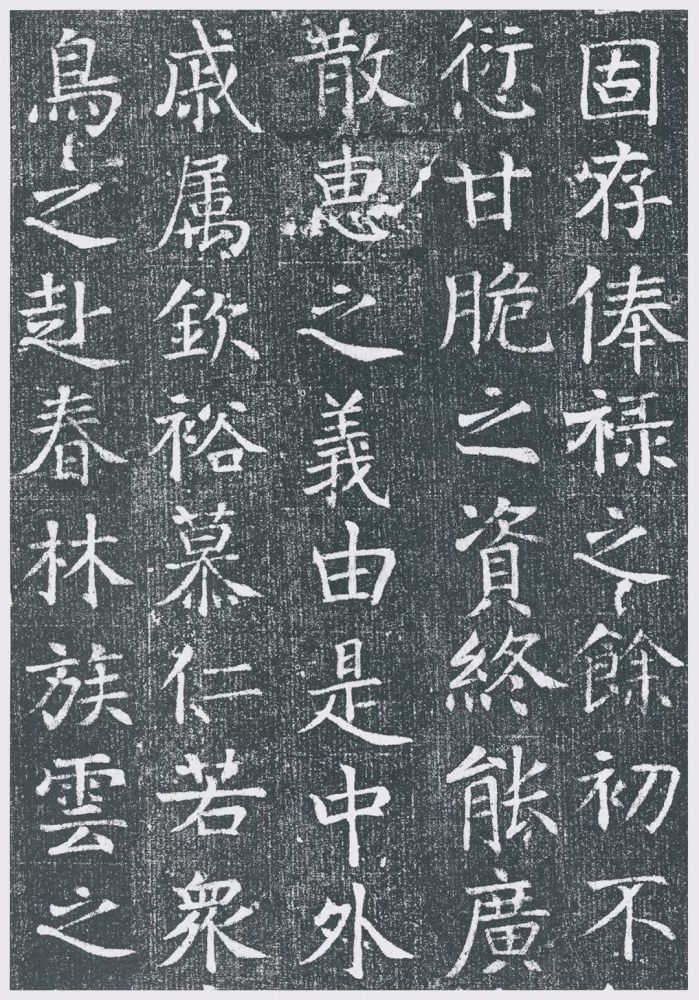 固存俸禄之餘初不
愆甘脆之資終能廣
散恵之義由是中外
戚属欽裕慕仁若衆
鳥之赴春林族雲之